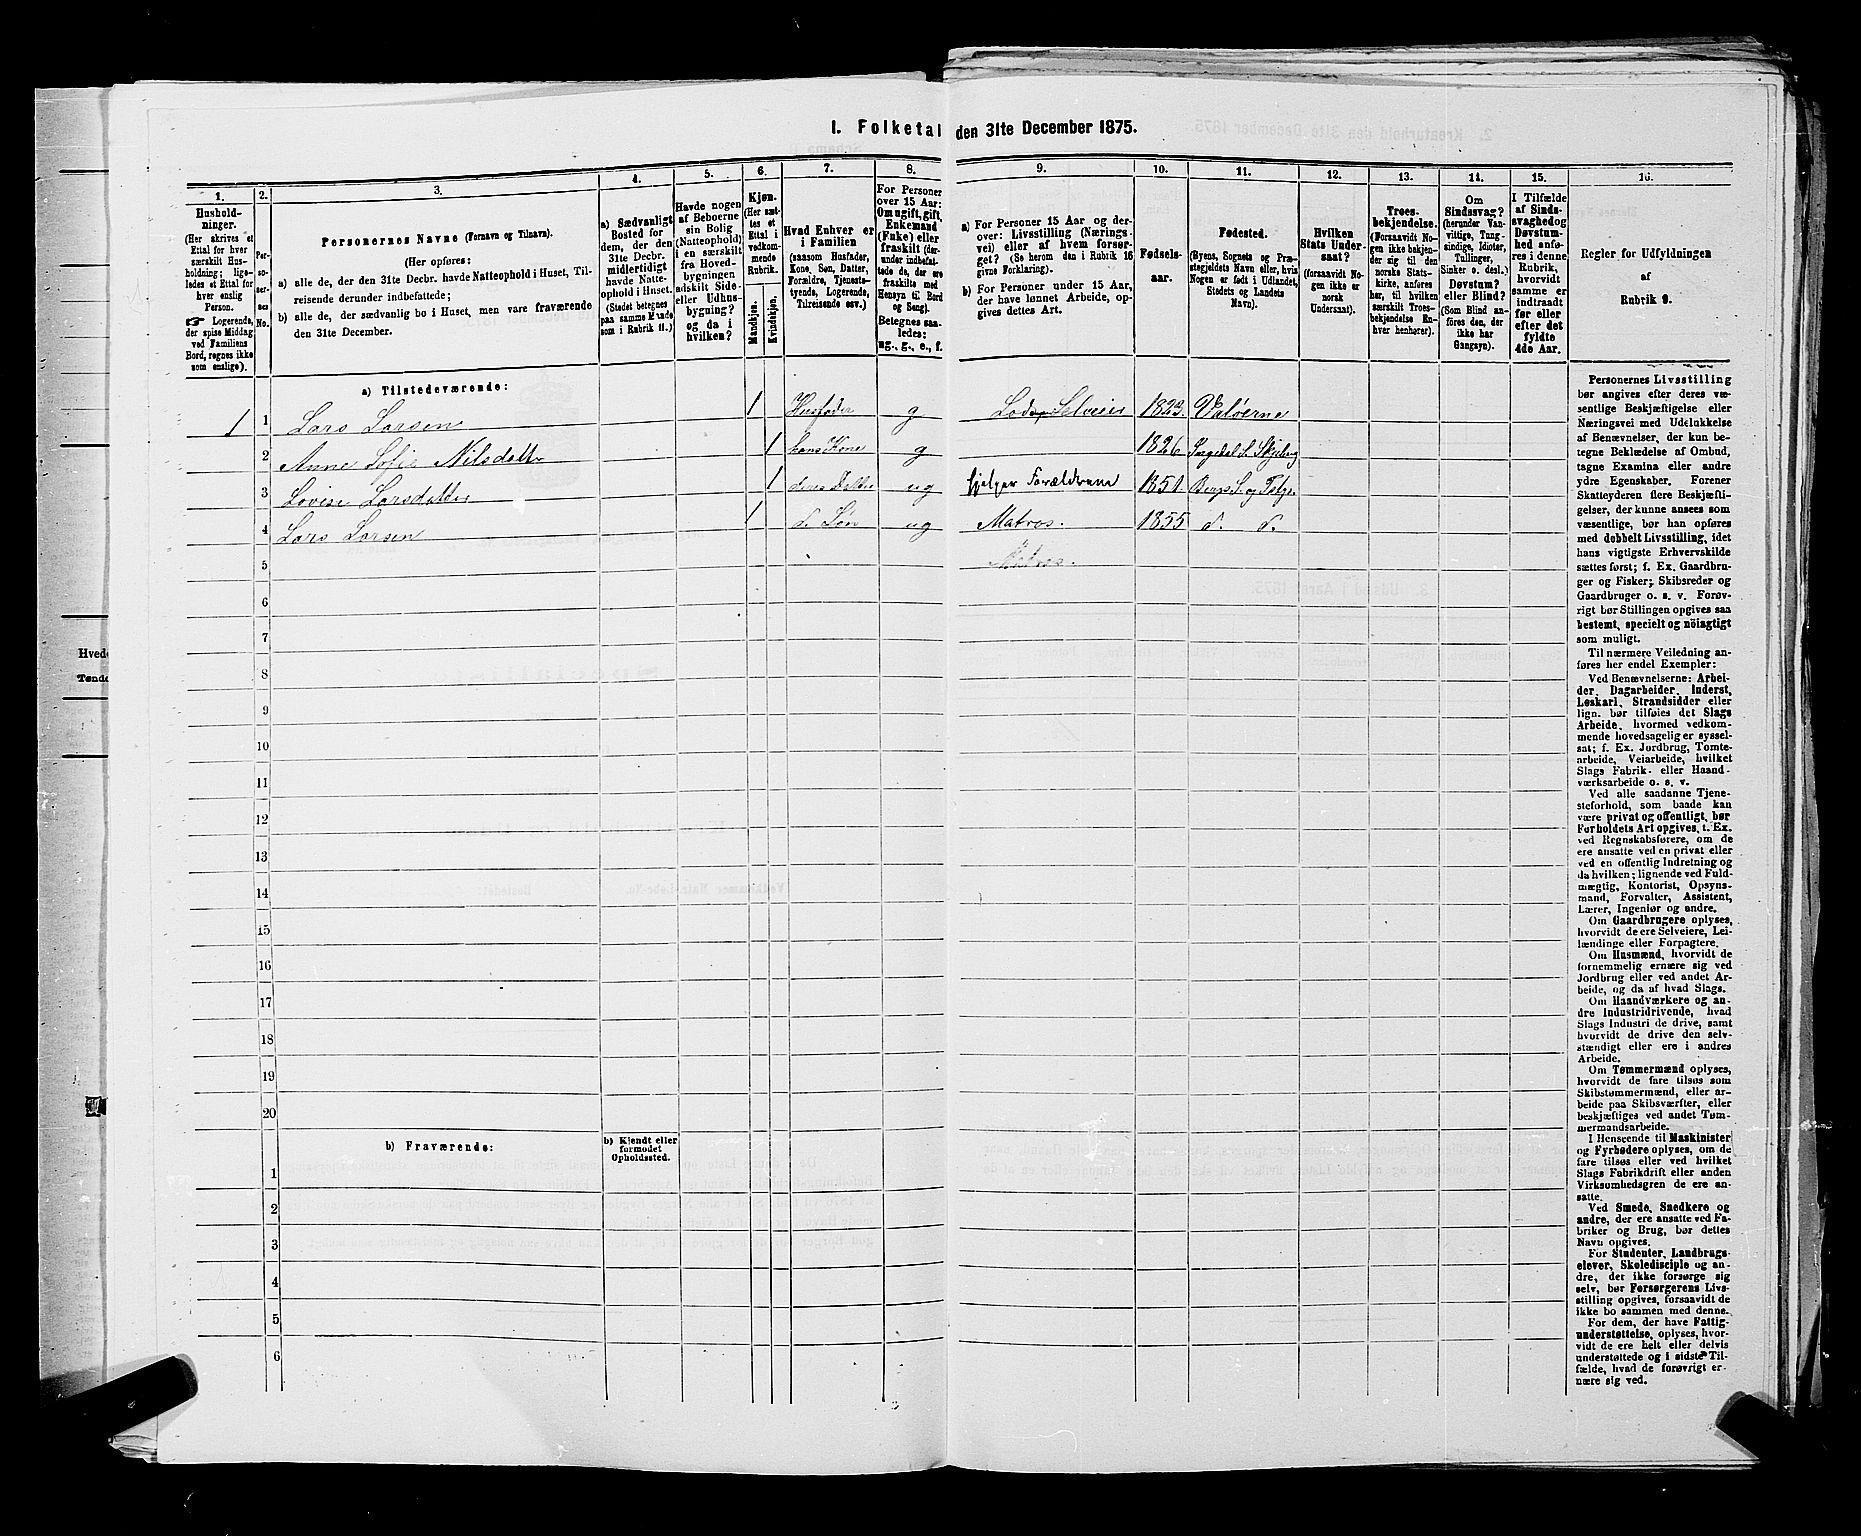 I. Folketal den 31te December 1875.
1.
2.
3.
4.
5.
6.
7.
8.
9.
10.
11.
12.
13.
14.
15.
16.
Hushold-
ninger.
(Her skrives et
Ettal for hver
særskilt Hus-
holdning; lige-
ledes et Ettal for
hver enslig
Person.
☞ Logerende,
der spise Middag
ved Familiens
Bord, regnes ikke
som enslige).
Per-
so-
ner-
nes
No.
Personernes Navne (Fornavn og Tilnavn).
(Her opføres:
a) alle de, der den 31te Decbr. havde Natteophold i Huset, Til-
reisende derunder indbefattede;
b) alle de, der sædvanlig bo i Huset, men vare fraværende
den 31te December.
a) Sædvanligt
Bosted for
dem, der den
31te Decbr.
midlertidigt
havde Natte-
ophold i Huset.
(Stedet betegnes
paa samme Maade
som i Rubrik 11.)
Havde nogen
af Beboerne
sin Bolig
(Natteophold)
i en særskilt
fra Hoved-
bygningen
adskilt Side-
eller Udhus-
bygning?
og da i
hvilken?
Kjøn.
(Her sæt-
tes et
Ettal i
vedkom-
mende
Rubrik.
Mandkjøn.
Kvindekjøn.
Hvad Enhver er
i Familien
(saasom Husfader,
Kone, Søn, Datter,
Forældre, Tjeneste-
tyende, Logerende,
Tilreisende osv.)
For Personer
over 15 Aar:
Om ugift, gift,
Enkemand
(Enke) eller
fraskilt (der-
under indbefat-
tede de, der ere
fraskilte med
Hensyn til Bord
og Seng).
Betegnes saa-
ledes:
ug., g., e., f.
a) For Personer 15 Aar og der-
over: Livsstilling (Nærings-
vei) eller af hvem forsør-
get? (Se herom den i Rubrik 16
givne Forklaring).
b) For Personer under 15 Aar,
der have lønnet Arbeide, op-
gives dettes Art.
Fødsels-
aar.
Fødested.
(Byens, Sognets og Præ-
stegjeldets Navn eller, hvis
Nogen er født i Udlandet,
Stedets og Landets
Navn).
Hvilken
Stats Under-
saat?
(forsaavidt No-
gen ikke er
norsk
Undersaat).
Troes-
bekjendelse.
(Forsaavidt No-
gen ikke bekjen-
der sig til den
norske Stats-
kirke, anføres
her, til hvilken
særskilt Troes-
bekjendelse En-
hver henhører).
Om
Sindssvag?
(herunder Van-
vittige, Tung-
sindige, Idioter,
Tullinger,
Sinker o. desl.)
Døvstum?
eller Blind?
(Som Blind an-
føres den, der
ikke har
Gangsyn).
I Tilfælde
af Sinds-
svaghed og
Døvstum-
hed anfø-
res i denne
Rubrik,
hvorvidt
samme er
indtraadt
før eller
efter det
fyldte
4de Aar.
Regler for Udfyldningen
af
Rubrik 9.
a) Tilstedeværende:
1 1 Lars Larsen 1 Husfader g Lods Selveier 1823. Valøerne
2 Anne Sofie Nilsdatter 1 hans Kone g 1826
3 Lovise Larsdatter 1 deres Datter ug hjelper Forældrene 1851
4 Lars Larsen 1 d. Søn ug Matros. 1855 d. d.
5 Matros.
6
7
8
9
10
11
12
13
14
15
16
17
18
19
20
b) Fraværende:
b) Kjendt eller
formodet
Opholdssted.
1
2
3
4
5
6
Personernes Livsstilling
bør angives efter deres væ-
sentlige Beskjæftigelse eller
Næringsvei med Udelukkelse
af Benævnelser, der kun be-
tegne Beklædelse af Ombud,
tagne Examina eller andre
ydre Egenskaber. Forener
Skatteyderen flere Beskjæfti-
gelser, der kunne ansees som
væsentlige, bør han opføres
med dobbelt Livsstilling, idet
hans vigtigste Erhvervskilde
sættes først; f. Ex. Gaardbru-
ger og Fisker; Skibsreder og
Gaardbruger o. s. v. Forøv-
rigt bør Stillingen opgives saa
bestemt, specielt og nöiagtigt
som muligt.
Til nærmere Veiledning an-
føres her endel Exempler:
Ved Benævnelserne: Arbei-
der, Dagarbeider, Inderst,
Løskarl, Strandsidder eller
lign. bør tilføies det Slags
Arbeide, hvormed vedkom-
mende hovedsagelig er syssel-
sat; f. Ex. Jordbrug, Tomte-
arbeide, Veiarbeide, hvilket
Slags Fabrik- eller Haand-
værksarbeide o. s. v.
Ved alle saadanne Tjene-
steforhold, som baade kan
være privat og offentligt, bør
Forholdets Art opgives, t. Ex.
ved Regnskabsførere, om de
ere ansatte ved en privat eller
ved en offentlig Indretning og
da hvilken; lignende ved Fuld-
mægtig, Kontorist, Opsyns-
mand, Forvalter, Assistent,
Lærer, Ingeniør og andre.
Om Gaardbrugere oplyses,
hvorvidt de ere Selveiere, Lei-
lændinge eller Forpagtere.
Om Husmænd, hvorvidt de
fornemmelig ernære sig ved
Jordbrug eller ved andet Ar-
beide, og da af hvad Slags.
Om Haandværkere og an-
dre Industridrivende, hvad
Slags Industri de drive, samt
hvorvidt de drive den selv-
stændigt eller ere i andres
Arbeide.
Om Tømmermænd oplyses,
hvorvidt de fare tilsøs som
Skibstømmermænd, eller ar-
beide paa Skibsværfter, eller
beskjæftiges ved andet Tøm-
mermandsarbeide.
I Henseende til Maskinister
og Fyrbødere oplyses, om de
fare tilsøs eller ved hvilket
Slags Fabrikdrift eller anden
Virksomhedsgren de ere an-
satte.
Ved Smede, Snedkere og
andre, der ere ansatte ved Fa-
briker og Brug, bør dettes
Navn opgives.
For Studenter, Landbrugs-
elever, Skoledisciple og an-
dre, der ikke forsørge sig
selv, bør Forsørgerens Livs-
stilling opgives, forsaavidt de
ikke bo sammen med denne.
For dem, der have Fattig-
understøttelse, oplyses, hvor-
vidt de ere helt eller delvis
understøttede og i sidste Til-
fælde, hvad de forøvrigt er-
nære sig ved.
Hvede
Tønde